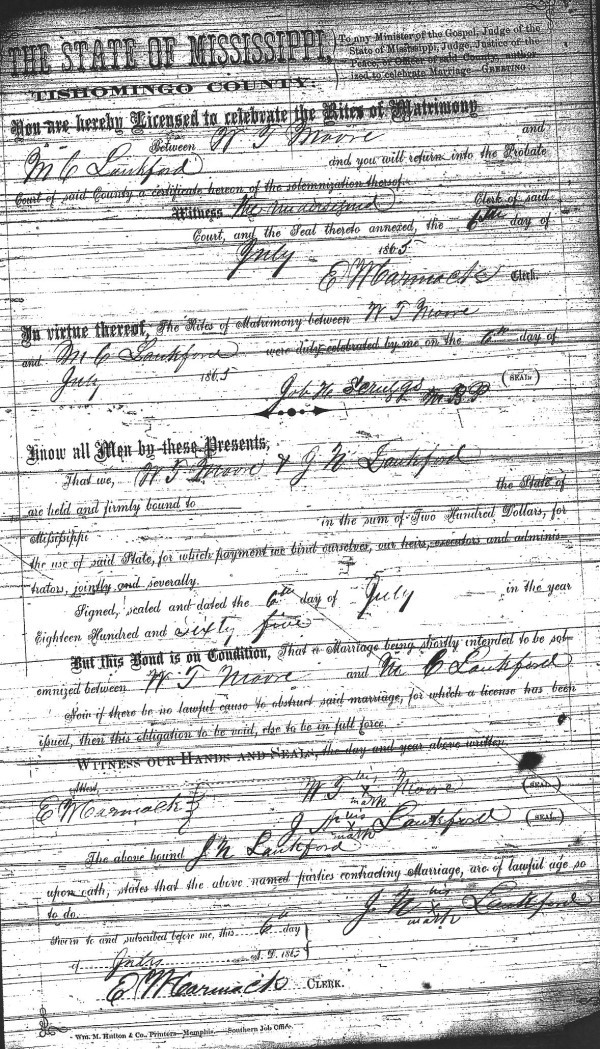 THE STATE OF MISSISSIPPI,
TISHOMINGO COUNTY.
To any Minister of the Gospel, Judge of the
State of Mississippi, Judge, Justice of the
Peace, or Officer of said County, author-
ized to celebrate Marriage—GREETING:
You are hereby Licensed to celebrate the Rites of Matrimony
Between W T Moore and
M C Lankford and you will return into the Probate
Court of said County a certificate hereon of the solemnization thereof.
Witness The undersigned Clerk of said
Court, and the Seal thereto annexed, the 6th day of
July 1865
E W Carmack Clerk.
In virtue thereof, The Rites of Matrimony between W T Moore
and M C Lankford were duly celebrated by me, on the 6th day of
July 1865
Scruggs (SEAL)
Know all Men by these Presents,
That we, W T Moore & J N Lankford
are held and firmly bound to the State of
Mississippi in the sum of Two Hundred Dollars, for
the use of said State, for which payment we bind ourselves, our heirs, executors and adminis-
trators, jointly and severally.
Signed, sealed and dated the 6th day of July in the year
Eighteen Hundred and sixty five
But this Bond is on Condition, That a Marriage being shortly intended to be sol-
emnized between W T Moore and M C Lankford
Now if there be no lawful cause to obstruct said marriage, for which a license has been
issued, then this obligation to be void, else to be in full force.
WITNESS OUR HANDS AND SEALS, the day and year above written.
Attest, W T his x mark Moore (SEAL)
E W Carmack J N his x mark Lankford (SEAL)
The above bound J N Lankford
upon oath, states that the above named parties contracting Marriage, are of lawful age so
to do. J N his x mark Lankford
Sworn to and subscribed before me, this 6th day
of July A. D. 1865
E W Carmack CLERK.
Wm. M. Hutton & Co., Printers—Memphis.—Southern Job Office.